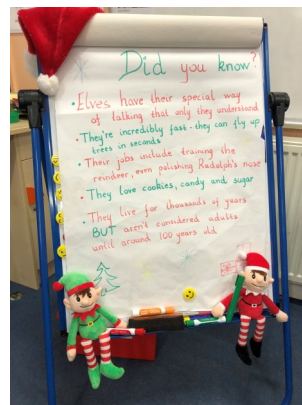 Did you know?
• Elves have their special way
of talking that only they understand
• They're incredibly fast - they can fly up
trees in seconds
• Their jobs include training the
reindeer, even polishing Rudolph's nose
• They love cookies, candy and sugar
• They live for thousands of years
BUT aren't considered adults
until around 100 years old